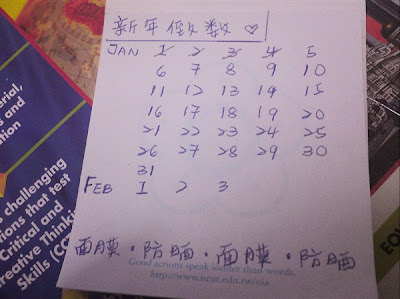 新年倒数 ♡
JAN 1 2 3 4 5
6 7 8 9 10
11 12 13 14 15
16 17 18 19 20
21 22 23 24 25
26 27 28 29 30
31
FEB 1 2 3
面膜·防晒·面膜·防晒
Good actions speak louder than words.
http://www.ncut.edu.tw/oia
challenging
tions that test
Critical and
reative Thinki
Skills (CC